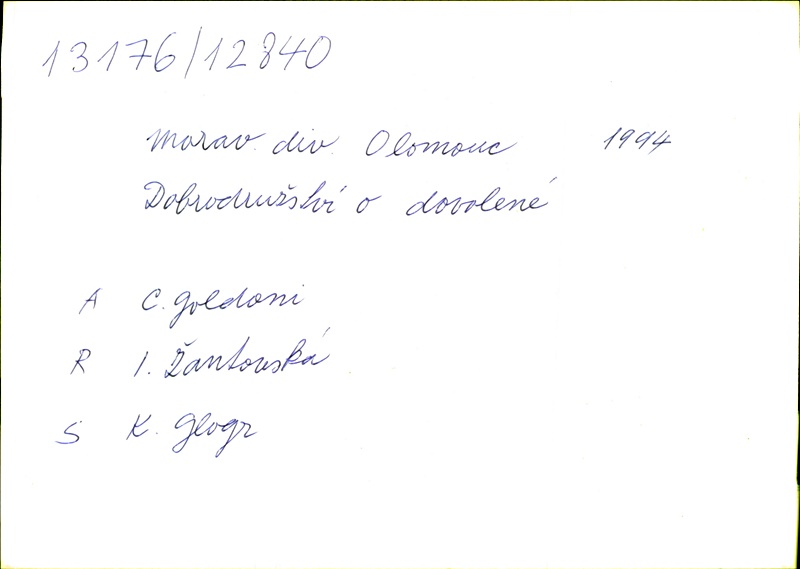 13176/12840
Morav. div. Olomouc 1994
Dobrodružství o dovolené
A C. Goldoni
R I. Žantovská
S K. Glogr